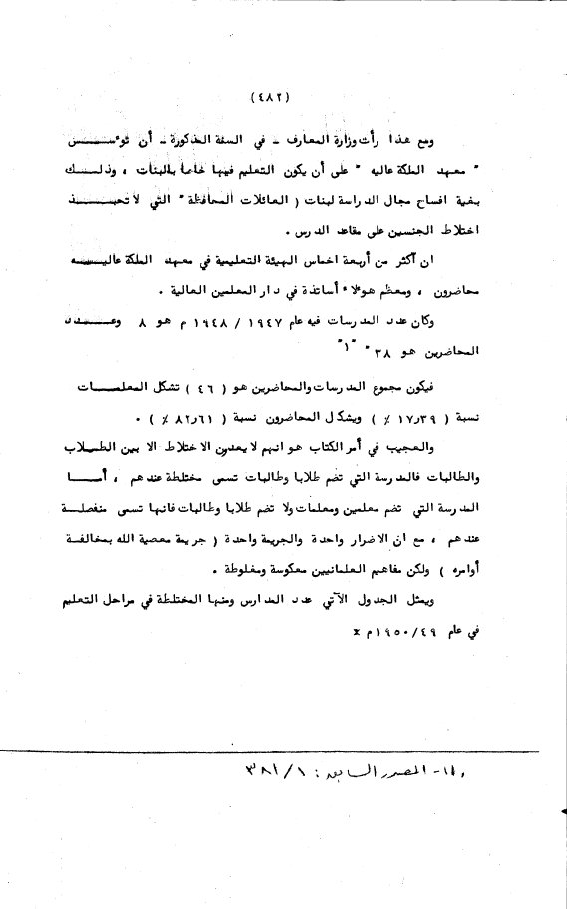 (٤٨٢)
ومع هذا رأت وزارة المعارف - في السنة المذكورة - أن تؤسس
" معهد الملكة عاليه " على أن يكون التعليم فيها خاصا بالبنات ، وذلك
بغية افساح مجال الدراسة لبنات ( العائلات المحافظة " التي لا تحبذ
اختلاط الجنسين على مقاعد الدرس .
ان أكثر من أربعة اخماس الهيئة التعليمية في معهد الملكة عاليه
محاضرون ، ومعظم هؤلاء أساتذة في دار المعلمين العالية .
وكان عدد المدرسات فيه عام ١٩٤٧ / ١٩٤٨ م هو ٨ وعدد
المحاضرين هو ٣٨ " ١ "
فيكون مجموع المدرسات والمحاضرين هو ( ٤٦ ) تشكل المعلمات
نسبة ( ١٧٫٣٩ ٪ ) ويشكل المحاضرون نسبة ( ٨٢٫٦١ ٪ ) .
والعجيب في أمر الكتاب هو انهم لا يعدون الاختلاط الا بين الطلاب
والطالبات فالمدرسة التي تضم طلابا وطالبات تسمى مختلطة عندهم ، أما
المدرسة التي تضم معلمين ومعلمات ولا تضم طلابا وطالبات فانها تسمى منفصلة
عندهم ، مع ان الاضرار واحدة والجريمة واحدة ( جريمة معصية الله بمخالفة
أوامره ) ولكن مفاهيم العلمانيين معكوسة ومغلوطة .
ويمثل الجدول الآتي عدد المدارس ومنها المختلطة في مراحل التعليم
في عام ١٩٥٠/٤٩م x
"١"- المصدر السابق : ٣٨١/١